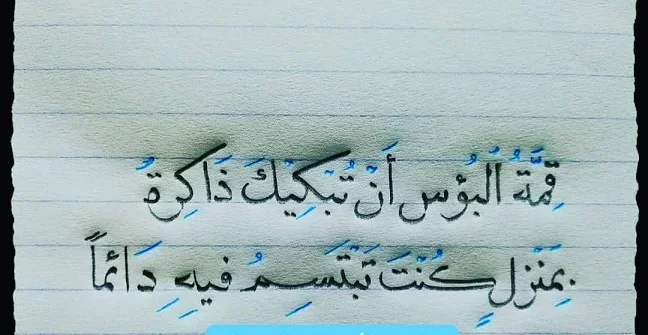 قِمَّةُ الْبُؤْسِ أَنْ تُبْكِيْكَ ذَاكِرَةُ
بِمَنْزِلٍ كُنْتَ تَبْتَسِمُ فِيهِ دَائماً